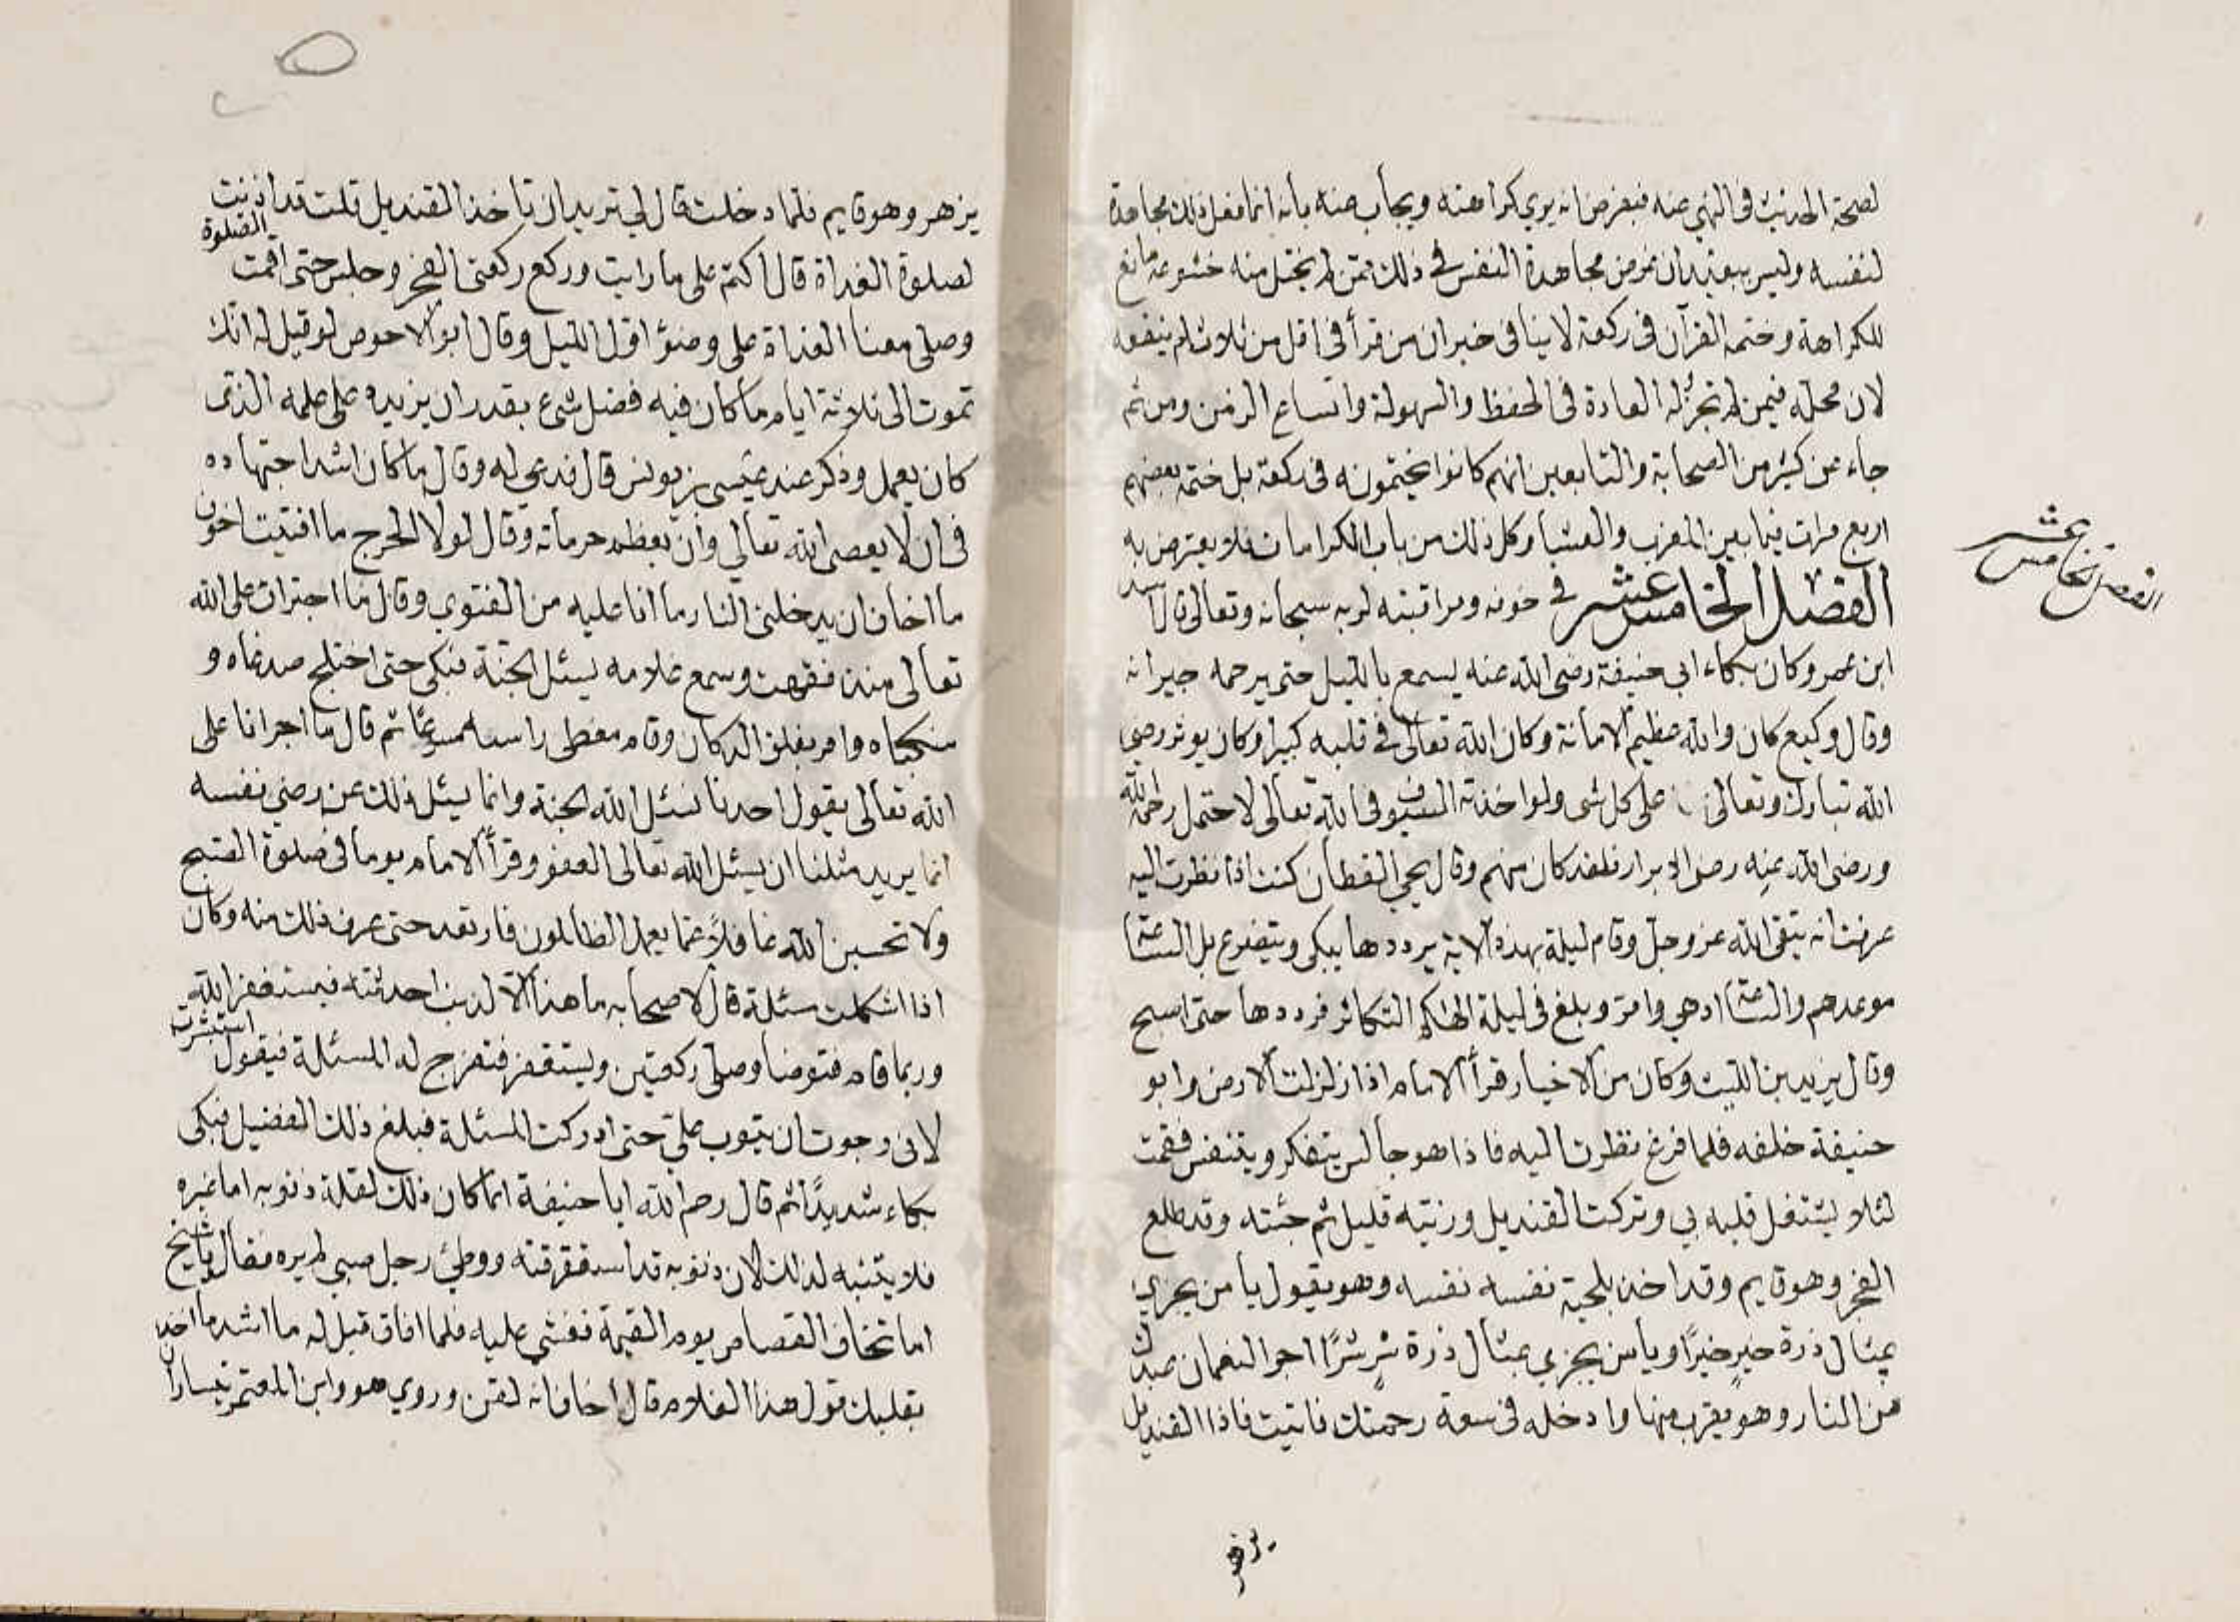 لصحة الحديث في النهي عنه فبفرض انه يرى كراهته ويجاب عنه بأنه انما فعل ذلك مجاهدة
لنفسه وليس ببعيد ان غرض مجاهدة النفس في ذلك ممن لم يختل منه خشوعه مانع
للكراهة وختمه القرآن في ركعة لا ينافي خبر ان من قرأ في اقل من ثلاث لم يتفقه
لان محله فيمن لم تجر له العادة في الحفظ والسهولة واتساع الزمن ومن ثم
جاء عن كثير من الصحابة والتابعين انهم كانوا يختمونه في ركعة بل ختمه بعضهم
اربع مرات فيما بين المغرب والعشا وكل ذلك من باب الكرامات فلا يعترض به
الفصل الخامس عشر في خوفه ومراقبته لربه سبحانه وتعالى قال اسد
الفصل الخامس عشر
ابن عمرو كان بكاء ابي حنيفة رضى الله عنه يسمع بالليل حتى يرحمه جيرانه
وقال وكيع كان والله عظيم الامانة وكان الله تعالى في قلبه كبيرا وكان يوثر رضى
الله تبارك وتعالى على كل شى ولو اخذته السيوف في الله تعالى لاحتمل رحمه الله
ورضى الله عنه رضى الابرار فلقد كان منهم وقال يحيى القطان كنت اذا نظرت اليه
عرفت انه يتقى الله عز وجل وقام ليلة بهذه الاية يرددها يبكى ويتضرع بل الساعة
موعدهم والساعة ادهى وامر وبلغ في ليلة الهاكم التكاثر فرددها حتى اصبح
وقال يزيد بن الليث وكان من الاخيار قرأ الامام اذا زلزلت الارض وابو
حنيفة خلفه فلما فرغ نظرت اليه فاذا هو جالس يتفكر ويتنفس فقمت
لئلا يشتغل قلبه بي وتركت القنديل وزيته قليل ثم جئته وقد طلع
الفجر وهو قايم وقد اخذ بلحية نفسه نفسه وهو يقول يا من يجزي
بمثال ذرة خير خيرًا ويا من يجزي بمثال ذرة شر شرًا اجر النعمان عبدك
من النار وهو يقرب منها وادخله في سعة رحمتك فاتيت فاذا القنديل
يزهر
يزهر وهو قايم فلما دخلت قال لي تريد ان تاخذ القنديل قلت قد اذنت
لصلوة الغداة قال اكتم على ما رايت وركع ركعتى الفجر وجلس حتى اقمت الصلوة
وصلى معنا الغداة على وضوء اول الليل وقال ابو الاحوص لو قيل له انك
تموت الى ثلاثة ايام ما كان فيه فضل شىء يقدر ان يزيده على علمه الذى
كان يعمل وذكر عند عيسى بن يونس قال فدعى له وقال ما كان اشد اجتهاده
في ان لا يعصى الله تعالى وان يعظم حرماته وقال لولا الحرج ما افتيت اخوف
ما اخاف ان يدخلنى النار ما انا عليه من الفتوى وقال ما اجترات على الله
تعالى منذ فقهت وسمع غلامه يسئل الجنة فبكى حتى اختلج صدغاه و
منكباه وامر بغلق الدكان وقام مغطى راسه مسرعًا ثم قال ما اجرانا على
الله تعالى يقول احدنا نسئل الله الجنة وانما يسئل ذلك من رضى نفسه
انما يريد مثلنا ان يسئل الله تعالى العفو وقرأ الامام يوما في صلوة الصبح
ولا تحسبن الله غافلًا عما يعمل الظالمون فارتعد حتى عرف ذلك منه وكان
اذا اشكلت مسئلة قال لاصحابه ما هذا الا لذنب احدثته فيستغفر الله
وربما قام فتوضا وصلى ركعتين ويستغفر فتفرج له المسئلة فيقول استبشرت
لانى رجوت ان يتوب على حتى ادركت المسئلة فبلغ ذلك الفضيل فبكى
بكاء شديدًا ثم قال رحم الله ابا حنيفة انما كان ذلك لقلة ذنوبه اما غيره
فلا يتنبه لذلك لان ذنوبه قد استغرقته ووطئ رجل صبي لم يره فقال يا شيخ
اما تخاف القصاص يوم القيمة فغشى عليه فلما افاق قيل له ما اشد ما اخذ
بقلبك قول هذا الغلام قال اخاف انه لقن وروي هو وابن المعتمر يتساران